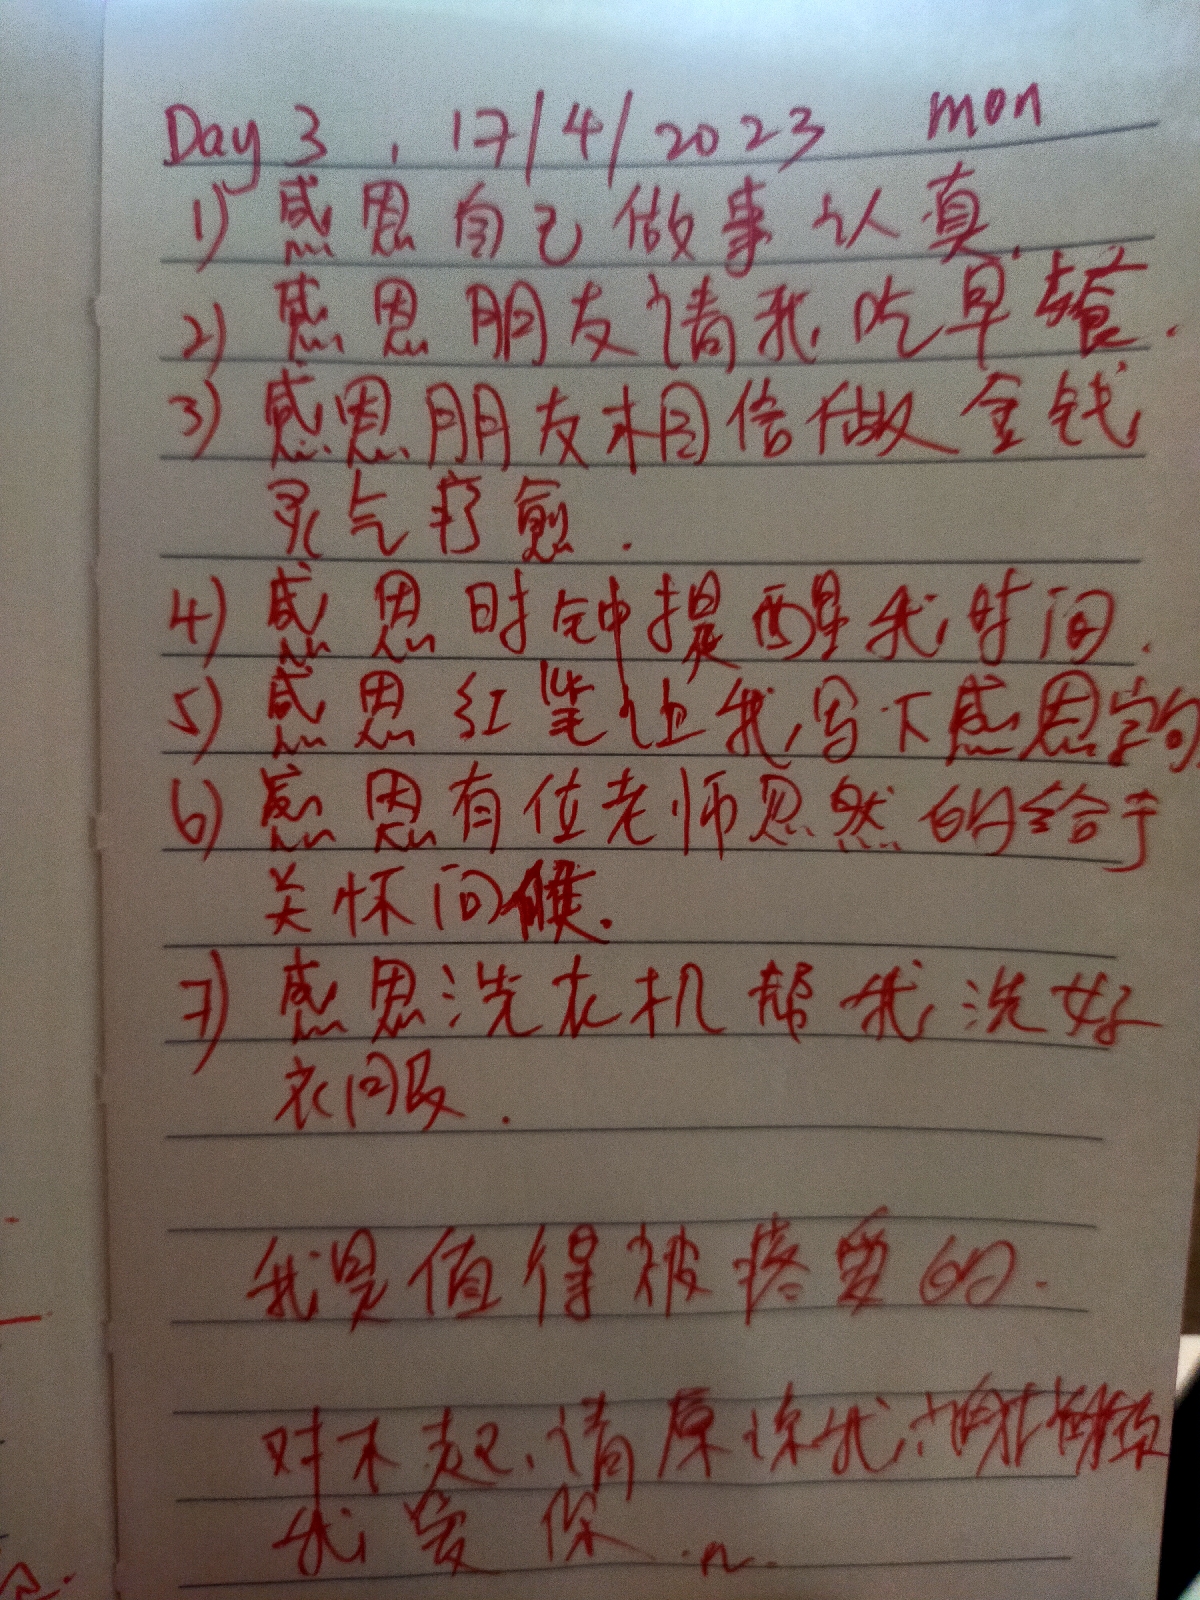 Day 3 , 17/4/2023 mon
1) 感恩自己做事认真.
2) 感恩朋友请我吃早餐.
3) 感恩朋友相信做金钱
灵气疗愈.
4) 感恩时钟提醒我时间.
5) 感恩红笔让我写下感恩字句
6) 感恩有位老师忽然的给于
关怀问候.
7) 感恩洗衣机帮我洗好
衣服.
我是值得被疼爱的.
对不起,请原谅我,谢谢你
我爱你